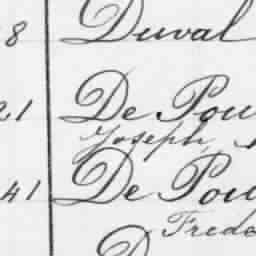 8 Duval
21 De Pou
Joseph
41 De Pou
Fred
D